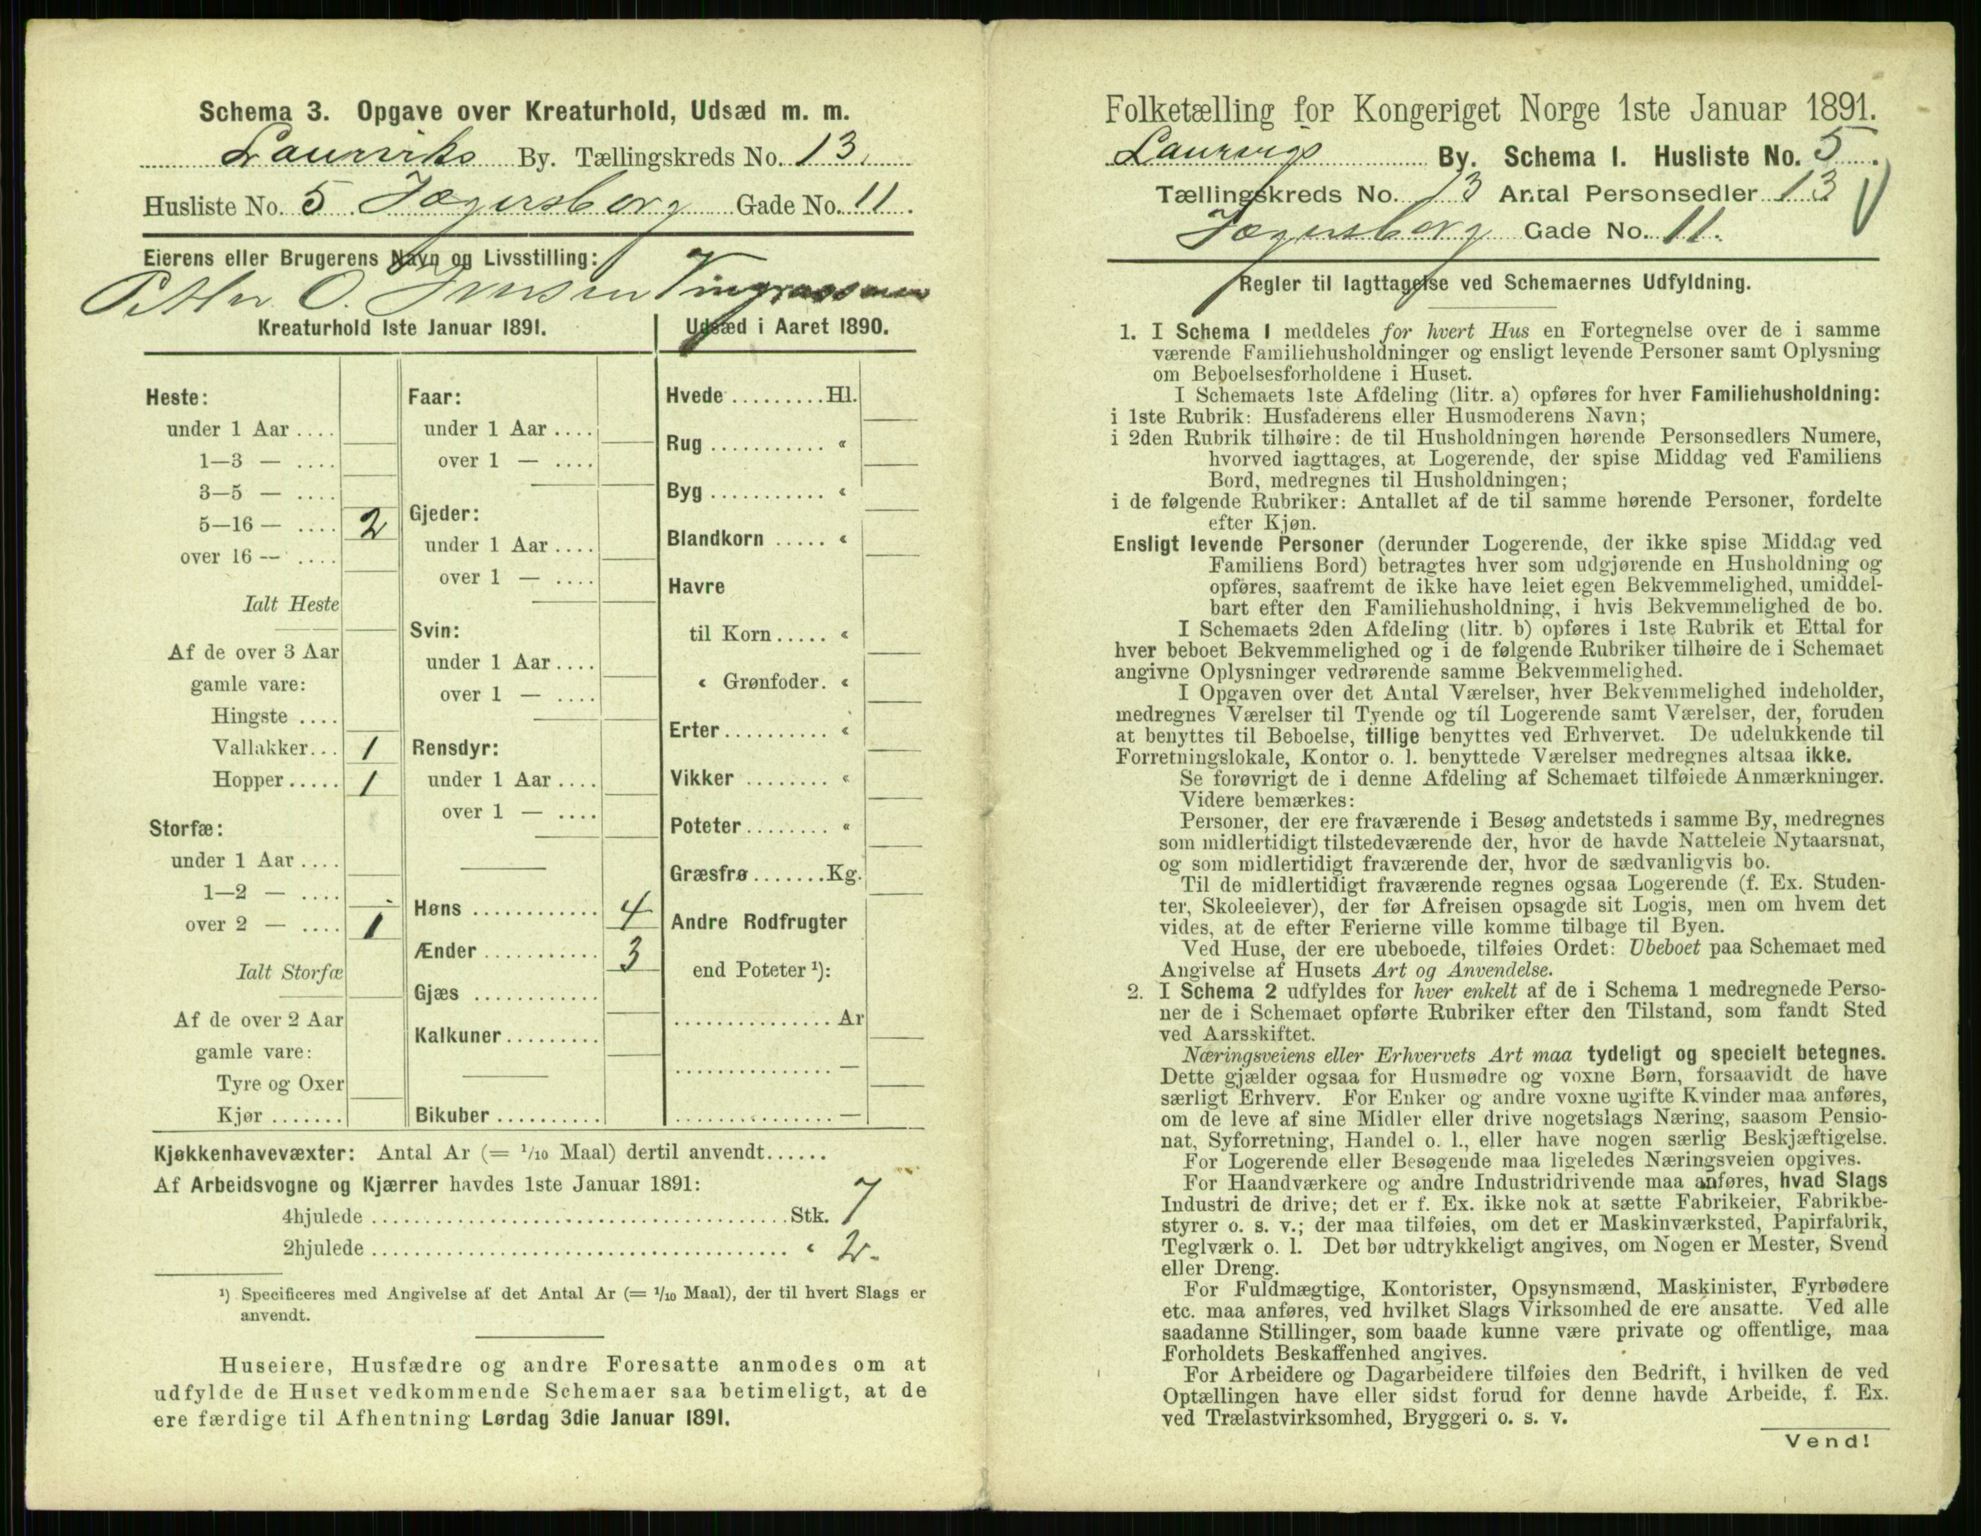 Schema 3. Opgave over Kreaturhold, Udsæd m. m.
Laurviks By. Tællingskreds No. 13.
Husliste No. 5 Jægersborg Gade No. 11.
Eierens eller Brugerens Navn og Livsstilling:
Petter O. Iversen
Kreaturhold 1ste Januar 1891.
Heste:
under 1 Aar ....
1—3 — ....
3—5 — ....
5—16 — .... 2
over 16 — ....
Ialt Heste
Af de over 3 Aar
gamle vare:
Hingste ....
Vallakker... 1
Hopper..... 1
Storfæ:
under 1 Aar ....
1—2 — ....
over 2 — .... 1
Ialt Storfæ
Af de over 2 Aar
gamle vare:
Tyre og Oxer
Kjør.......
Faar:
under 1 Aar ....
over 1 — ....
Gjeder:
under 1 Aar ....
over 1 — ....
Svin:
under 1 Aar ....
over 1 — ....
Rensdyr:
under 1 Aar ....
over 1 — ....
Høns ............ 4
Ænder ........... 3
Gjæs ............
Kalkuner.........
Bikuber..........
Udsæd i Aaret 1890.
Hvede.........Hl.
Rug ........... «
Byg ........... «
Blandkorn ..... «
Havre
til Korn..... «
« Grønfoder. «
Erter.......... «
Vikker ........ «
Poteter........ «
Græsfrø.......Kg.
Andre Rodfrugter
end Poteter ¹):
............... Ar
............... —
............... —
Kjøkkenhavevæxter: Antal Ar (= 1/10 Maal) dertil anvendt......
Af Arbeidsvogne og Kjærrer havdes 1ste Januar 1891:
4hjulede ..................................... Stk. 7
2hjulede ..................................... « 2.
¹) Specificeres med Angivelse af det Antal Ar (= 1/10 Maal), der til hvert Slags er
anvendt.
Huseiere, Husfædre og andre Foresatte anmodes om at
udfylde de Huset vedkommende Schemaer saa betimeligt, at de
ere færdige til Afhentning Lørdag 3die Januar 1891.
Folketælling for Kongeriget Norge 1ste Januar 1891.
Laurvigs By. Schema 1. Husliste No. 5.
Tællingskreds No. 13 Antal Personsedler 13
Jægersborg Gade No. 11.
Regler til Iagttagelse ved Schemaernes Udfyldning.
1. I Schema 1 meddeles for hvert Hus en Fortegnelse over de i samme
værende Familiehusholdninger og ensligt levende Personer samt Oplysning
om Beboelsesforholdene i Huset.
I Schemaets 1ste Afdeling (litr. a) opføres for hver Familiehusholdning:
i 1ste Rubrik: Husfaderens eller Husmoderens Navn;
i 2den Rubrik tilhøire: de til Husholdningen hørende Personsedlers Numere,
hvorved iagttages, at Logerende, der spise Middag ved Familiens
Bord, medregnes til Husholdningen;
i de følgende Rubriker: Antallet af de til samme hørende Personer, fordelte
efter Kjøn.
Ensligt levende Personer (derunder Logerende, der ikke spise Middag ved
Familiens Bord) betragtes hver som udgjørende en Husholdning og
opføres, saafremt de ikke have leiet egen Bekvemmelighed, umiddel-
bart efter den Familiehusholdning, i hvis Bekvemmelighed de bo.
I Schemaets 2den Afdeling (litr. b) opføres i 1ste Rubrik et Ettal for
hver beboet Bekvemmelighed og i de følgende Rubriker tilhøire de i Schemaet
angivne Oplysninger vedrørende samme Bekvemmelighed.
I Opgaven over det Antal Værelser, hver Bekvemmelighed indeholder,
medregnes Værelser til Tyende og til Logerende samt Værelser, der, foruden
at benyttes til Beboelse, tillige benyttes ved Erhvervet. De udelukkende til
Forretningslokale, Kontor o. l. benyttede Værelser medregnes altsaa ikke.
Se forøvrigt de i denne Afdeling af Schemaet tilføiede Anmærkninger.
Videre bemærkes:
Personer, der ere fraværende i Besøg andetsteds i samme By, medregnes
som midlertidigt tilstedeværende der, hvor de havde Natteleie Nytaarsnat,
og som midlertidigt fraværende der, hvor de sædvanligvis bo.
Til de midlertidigt fraværende regnes ogsaa Logerende (f. Ex. Studen-
ter, Skoleelever), der før Afreisen opsagde sit Logis, men om hvem det
vides, at de efter Ferierne ville komme tilbage til Byen.
Ved Huse, der ere ubeboede, tilføies Ordet: Ubeboet paa Schemaet med
Angivelse af Husets Art og Anvendelse.
2. I Schema 2 udfyldes for hver enkelt af de i Schema 1 medregnede Perso-
ner de i Schemaet opførte Rubriker efter den Tilstand, som fandt Sted
ved Aarsskiftet.
Næringsveiens eller Erhvervets Art maa tydeligt og specielt betegnes.
Dette gjælder ogsaa for Husmødre og voxne Børn, forsaavidt de have
særligt Erhverv. For Enker og andre voxne ugifte Kvinder maa anføres,
om de leve af sine Midler eller drive nogetslags Næring, saasom Pensio-
nat, Syforretning, Handel o. l., eller have nogen særlig Beskjæftigelse.
For Logerende eller Besøgende maa ligeledes Næringsveien opgives.
For Haandværkere og andre Industridrivende maa anføres, hvad Slags
Industri de drive; det er f. Ex. ikke nok at sætte Fabrikeier, Fabrikbe-
styrer o. s. v.; der maa tilføies, om det er Maskinværksted, Papirfabrik,
Teglværk o. l. Det bør udtrykkeligt angives, om Nogen er Mester, Svend
eller Dreng.
For Fuldmægtige, Kontorister, Opsynsmænd, Maskinister, Fyrbødere
etc. maa anføres, ved hvilket Slags Virksomhed de ere ansatte. Ved alle
saadanne Stillinger, som baade kunne være private og offentlige, maa
Forholdets Beskaffenhed angives.
For Arbeidere og Dagarbeidere tilføies den Bedrift, i hvilken de ved
Optællingen have eller sidst forud for denne havde Arbeide, f. Ex.
ved Trælastvirksomhed, Bryggeri o. s. v.
Vend!